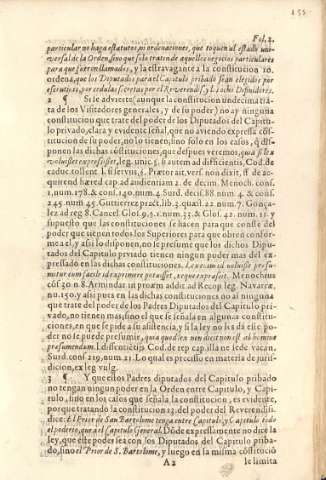 155
Fol. 2.
particular ni haga estatutos, ni ordenaciones, que toquen al estado uni-
versal de la Orden, sino que solo traten de aquellos negocios particulares
para que fueren llamados, y la estravagante a la constitucion 20.
ordena, que los Diputados para el Capitulo pribado sean elegidos por
escrutinio, por cedulas secretas por el Reverendiss. y los ocho Difinidores.
2 ¶ Si se advierte (aunque la constitucion undecima tra-
ta de los Visitadores generales, y de su poder) no ay ninguna
constitucion que trate del poder de los Diputados del Capitu-
lo privado, clara y evidente señal, que no aviendo expressa cōs-
titucion de su poder, no le tienen, sino solo en los casos, q̃ diss-
ponen las dichas cōstituciones, que despues veremos, quia si lex
voluisset expressisset, leg. unic. §. sin autem ad deficientis, Cod. de
caduc. tollend.
l, numero 178. & cons. 140. num. 4. Surd. decis. 88 num. 4. & cons.
245 num 45. Gutierrez pract. lib. 3. quæst. 22 num. 7. Gonça-
lez ad reg. 8. Cancel. Glos. 9. §. 1. num. 35. & Glos. 42. num. 11. y
supuesto que las constituciones se hacen para que conste del
poder que tienen todos los Superiores para que obren confor-
me a el, y assi lo disponen, no se presume que los dichos Dipu-
tados del Capitulo privado tienen ningun poder mas del ex-
pressado en las dichas constituciones.
cōs 30 n 8. Armindar in proœm addit. ad Recop. leg. Navarræ,
nu. 150. y assi pues en las dichas constituciones no ai ninguna
que trate del poder de los Padres Diputados del Capitulo pri-
vado, no tienen mas, sino el que se señala en algunas constitu-
ciones, en que se pide a su asistencia, y si la ley no les dà esse po-
der no se puede presumir, quia quod à iure dictum est ab homine
præsumendum. l. dissentientis Cod. de rep. capilla ne sede vacan.
Surd. cons. 219. num. 21. Lo qual es precisso en materia de juris-
dicion, ex leg vulg.
3 ¶ Y que estos Padres diputados del Capitulo pribado
no tengan ningun poder en la Orden entre Capitulo, y Capi-
tulo, sino en los casos que señala la constitucion, es evidente,
porque tratando la constitucion 13. del poder del Reverendiss.
dice: El Prior de San Bartolome tenga entre Capitulo, y Capitulo todo
el poderio, que à el Capitulo General. Dōde expressamente no dice la
ley, que este poder sea con los Diputados del Capitulo pribado,
sino el Prior de S. Bartolome, y luego en la misma cōstitució
A 2 le limita